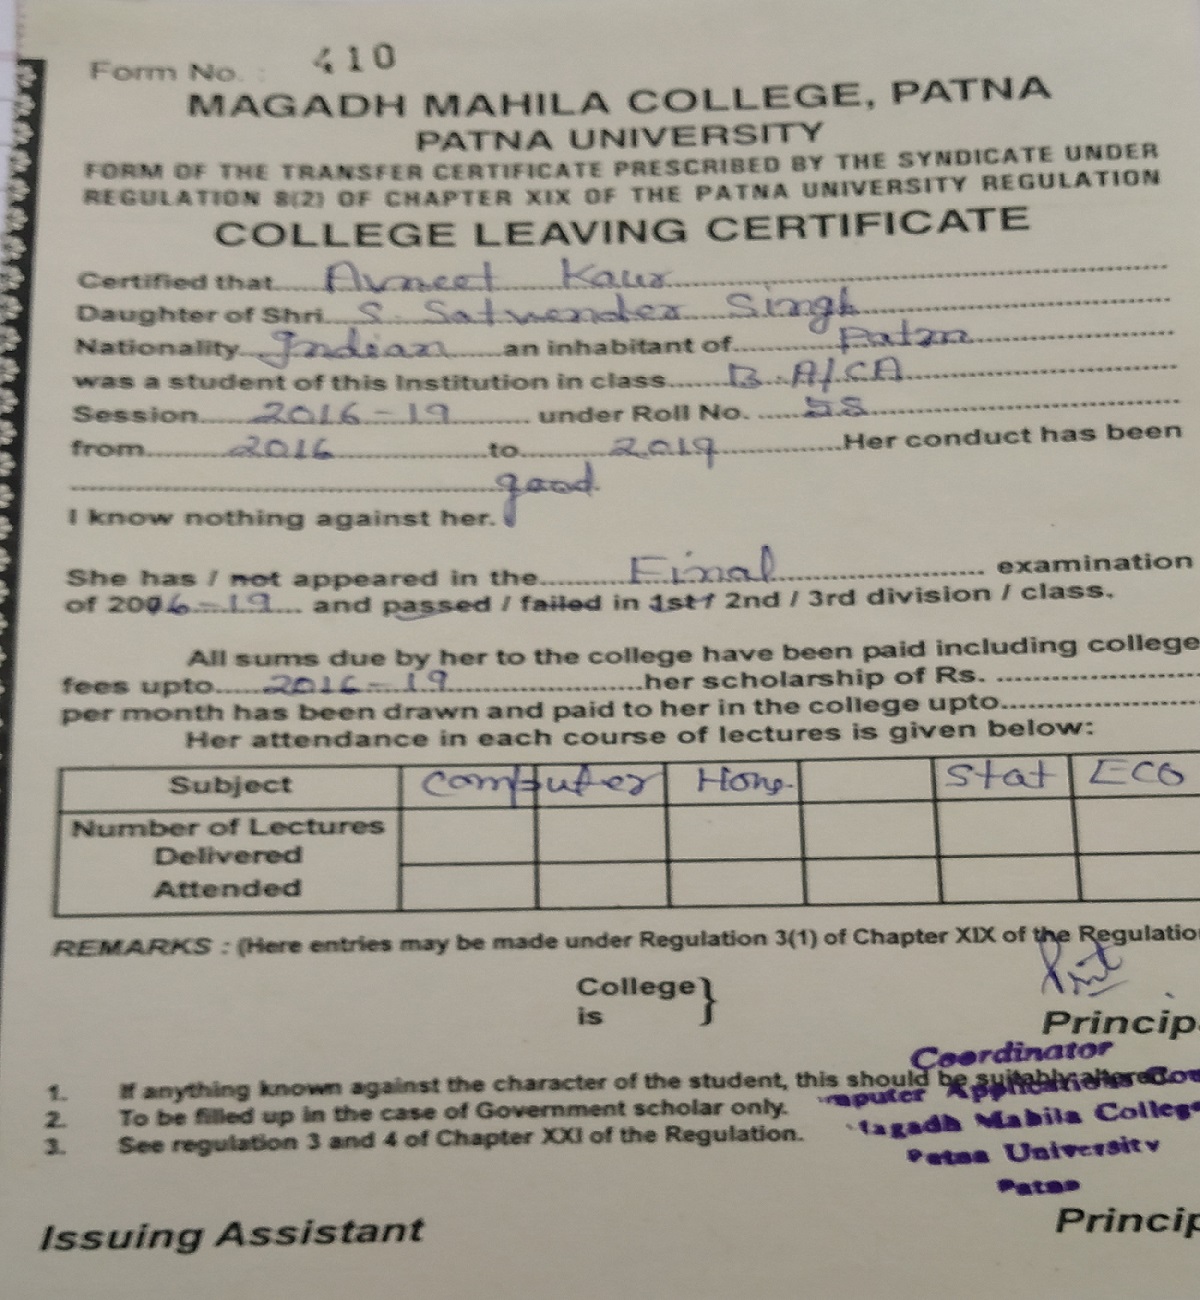 Form No. : 410
MAGADH MAHILA COLLEGE, PATNA
PATNA UNIVERSITY
FORM OF THE TRANSFER CERTIFICATE PRESCRIBED BY THE SYNDICATE UNDER
REGULATION 8(2) OF CHAPTER XIX OF THE PATNA UNIVERSITY REGULATION
COLLEGE LEAVING CERTIFICATE
Certified that Avneet Kaur
Daughter of Shri S. Satvender Singh
Nationality Indian an inhabitant of Patna
was a student of this Institution in class B.A/CA
Session 2016-19 under Roll No.
from 2016 to 2019 Her conduct has been
good
I know nothing against her.
She has / not appeared in the Final examination
of 2016-19 and passed / failed in 1st / 2nd / 3rd division / class.
All sums due by her to the college have been paid including college
fees upto 2016-19 her scholarship of Rs.
per month has been drawn and paid to her in the college upto
Her attendance in each course of lectures is given below:
Subject Computer Hons. Stat ECO
Number of Lectures
Delivered
Attended
REMARKS : (Here entries may be made under Regulation 3(1) of Chapter XIX of the Regulatio
College }
is
Princip
Coordinator
1. If anything known against the character of the student, this should be suitably altered
mputer Applications
2. To be filled up in the case of Government scholar only.
Magadh Mahila College
3. See regulation 3 and 4 of Chapter XXI of the Regulation.
Patna University
Patna
Issuing Assistant Princip